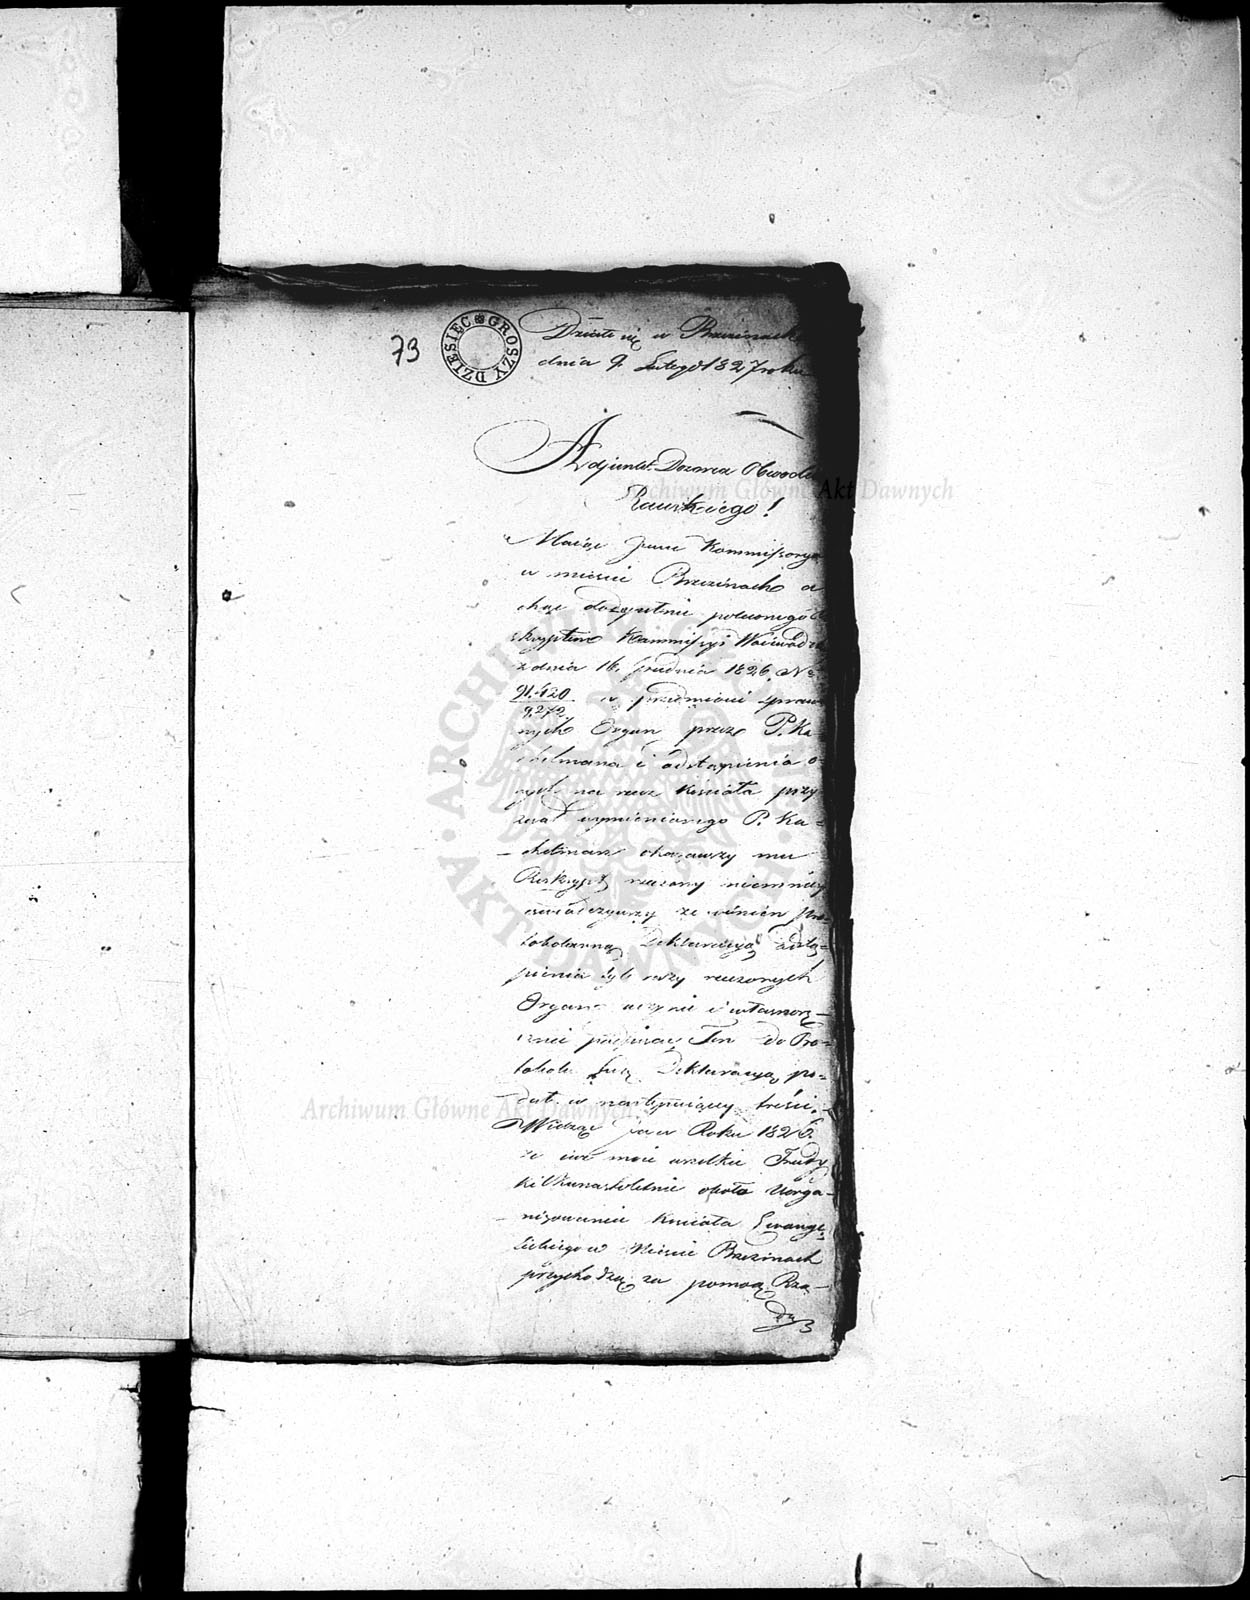 73
DZIESIĘC GROSZY
Działo się w Brzezinach
dnia 9. Lutego 1827 roku
Adjunkt Dozorca Obwodu
Rawskiego!
Maiąc Kommissorya
w mieście Brzezinach
chąc poleconego
skryptem Kommissyi Woiewódz
z dnia 16. Grudnia 1826 No
91.420
9.272
w przedmiocie spraw
nych Organ przez P. Ka
chelmana i odstąpienia o-
nych na rzecz Kościoła przy
zwał wymienionego P. Ka-
chelmana okazawszy mu
Reskrypt rzeczony niemniéy
oświadczywszy że winien Pro-
tokolarną Deklaracyą odstą-
pienia rzeczonych
Organ uczynić i własnorę-
cznie podpisać Ten do Pro-
tokołu Swą Deklaracyą po-
dał w następuiącéy treści.
Widząc ja w Roku 1826.
że moie wszelkie Trudy
kilkunastoletnie około Uorga-
nizowania Kościoła Ewange-
lickiego w Mieście Brzezinach
przychodzą za pomocą Rzą-
du
Archiwum Główne Akt Dawnych
Archiwum Główne Akt Dawnych
ARCHIWUM GŁÓWNE AKT DAWNYCH